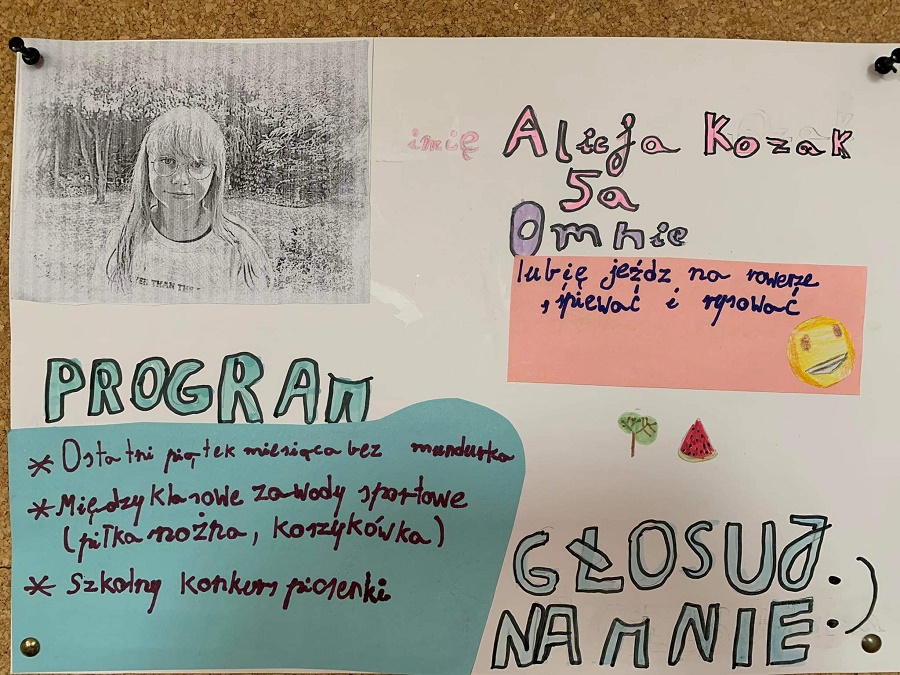 imię Alicja Kozak
5a
O mnie
lubię jeźdz na rowerze
, śpiewać i rysować
PROGRAM
* Ostatni piątek miesiąca bez mundurka
* Między klasowe zawody sportowe
(piłka nożna, koszykówka)
* Szkolny konkurs piosenki
GŁOSUJ
NA MNIE :)